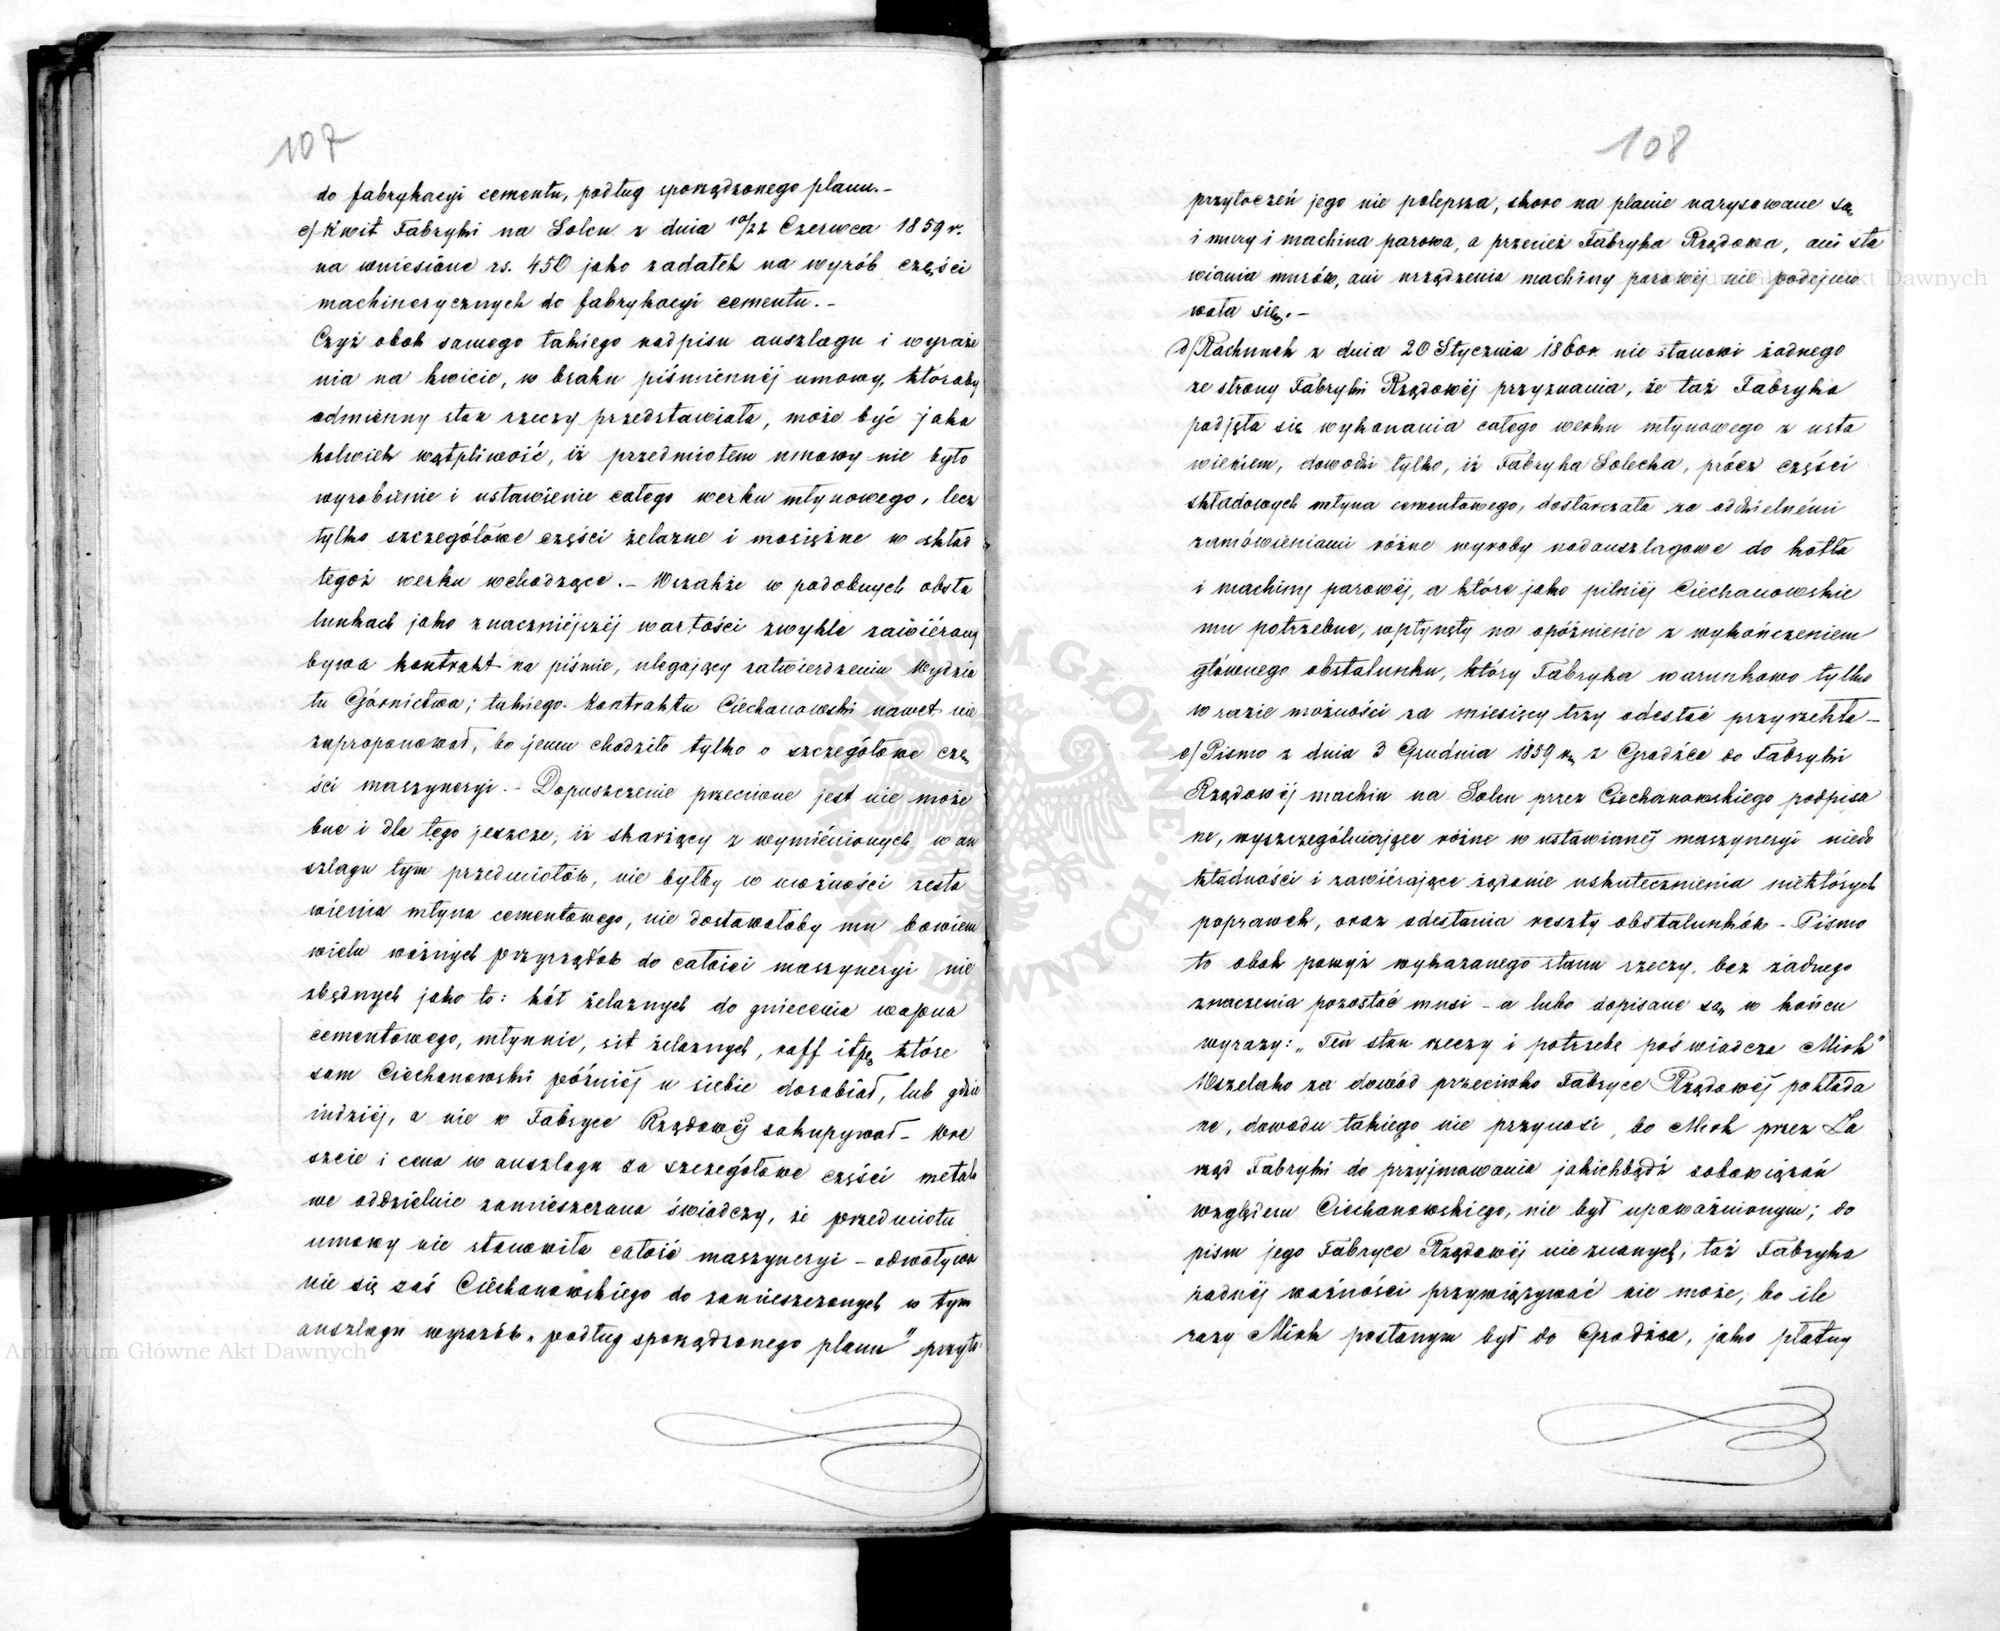 107
do fabrykacyi cementu, podług sporządzonego planu.-
c/ Kwit Fabryki na Solcu z dnia 10/22 Czerwca 1859 r.
na wniesione rs. 450 jako zadatek na wyrób części
machinerycznych do fabrykacyi cementu.-
Czyż obok samego takiego nadpisu auszlagu i wyraże
nia na kwicie, w braku piśmiennéj umowy, któraby
odmienny stan rzeczy przedstawiała, może być jaka
kolwiek wątpliwość, iż przedmiotem umowy nie było
wyrobienie i ustawienie całego werku młynowego, lecz
tylko szczegółowe części żelazne i mosiężne w skład
tegoż werku wchodzące.- Wszakże w podobnych obsta
lunkach jako znaczniéjszéj wartości zwykle zawiérany
bywa kontrakt na piśmie, ulegający zatwierdzeniu Wydzia
łu Górnictwa; takiego kontraktu Ciechanowski nawet nie
zaproponował, bo jemu chodziło tylko o szczegółowe czę
ści maszyneryi.- Dopuszczenie przeciwne jest nie może
bne i dla tego jeszcze, iż skarżący z wymiénionych w au
szlagu tym przedmiotów, nie byłby w możności zesta
wienia młyna cementowego, nie dostawałoby mu bowiem
wielu ważnych przyrządów do całości maszyneryi nie
zbędnych jako to: kół żelaznych do gniecenia wapna
cementowego, młynnic, sit żelaznych, raff itp, które
sam Ciechanowski późniéj u siebie dorabiał, lub gdzie
indziéj, a nie w Fabryce Rządowéj zakupywał- Wre
szcie i cena w auszlagu za szczegółowe części metalo
we oddzielnie zamieszczona świadczy, że przedmiotu
umowy nie stanowiła całość maszyneryi - odwoływa
nie się zaś Ciechanowskiego do zamieszczonych w tym
auszlagu wyrazów „podług sporządzonego planu" przyto-
108
przytoczeń jego nie polepsza, skoro na planie narysowane są
i mury i machina parowa, a przecież Fabryka Rządowa, ani sta
wiania murów, ani urządzenia machiny parowéj nie podejmo
wała się.-
d/ Rachunek z dnia 20 Stycznia 1860r. nie stanowi żadnego
ze strony Fabryki Rządowéj przyznania, że taż Fabryka
podjęła się wykonania całego werku młynowego z usta
wieniem, dowodzi tylko, iż Fabryka Solecka, prócz części
składowych młyna cementowego, dostarczała za oddzielnémi
zamówieniami różne wyroby nadauszlagowe do kotła
i machiny parowéj, a które jako pilniéj Ciechanowskie
mu potrzebne, wpłynęły na opóźnienie z wykończeniem
głównego obstalunku, który Fabryka warunkowo tylko
w razie możności za miesięcy trzy odesłać przyrzekła-
e/ Pismo z dnia 3 Grudnia 1859 r. z Grodźca do Fabryki
Rządowéj machin na Solcu przez Ciechanowskiego podpisa
ne, wyszczególniające różne w ustawianéj maszyneryi niedo
kładności i zawiérające żądanie uskutecznienia niektórych
poprawek, oraz odesłania reszty obstalunków - Pismo
to obok powyż wykazanego stanu rzeczy, bez żadnego
znaczenia pozostać musi - a lubo dopisane są w końcu
wyrazy: „Ten stan rzeczy i potrzebę poświadcza Mioh"
Wszelako za dowód przeciwko Fabryce Rządowéj pokłada
ne, dowodu takiego nie przynosi, bo Mioh przez Za
rząd Fabryki do przyjmowania jakichbądź zobowiązań
względem Ciechanowskiego, nie był upoważnionym; do
pism jego Fabryce Rządowéj nieznanych, taż Fabryka
żadnéj ważności przywiązywać nie może, bo ile
razy Mioh posłanym był do Grodźca, jako płatny
Archiwum Główne Akt Dawnych